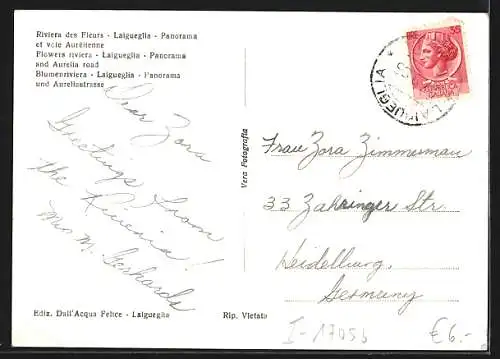 Riviera des Fleurs - Laigueglia - Panorama
et voie Aurélienne
Flowers riviera - Laigueglia - Panorama
and Aurelia road
Blumenriviera - Laigueglia - Panorama
und Aureliastrasse
35
LAIGUEGLIA
ITALIANA
Dear Zora
Greetings from
the Riviera!
Mrs M. Gerhards
Vera Fotografia
Frau Zora Zimmerman
33 Zahringer Str.
Heidelburg,
Germany
Ediz. Dall'Acqua Felice - Laigueglia
Rip. Vietata
I-17053
€6.-